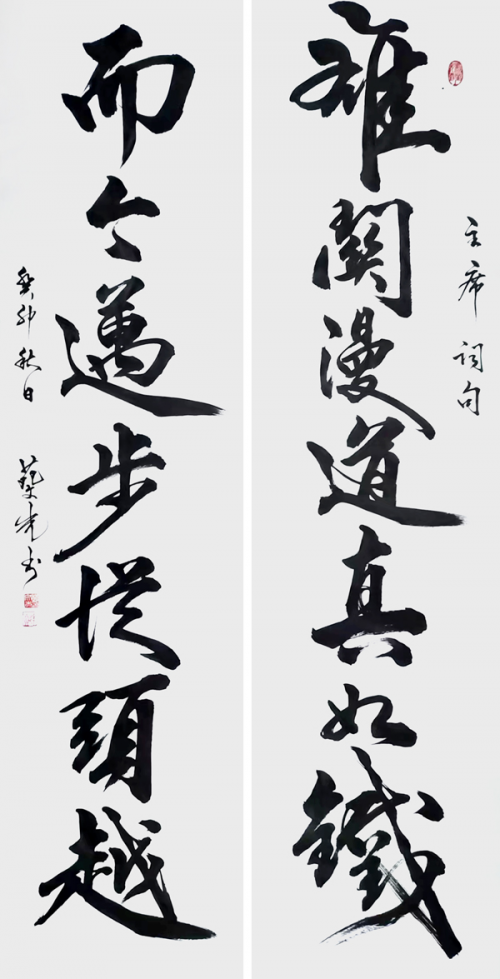 主席詞句
雄關漫道真如鐵
而今邁步從頭越
癸卯秋日 書